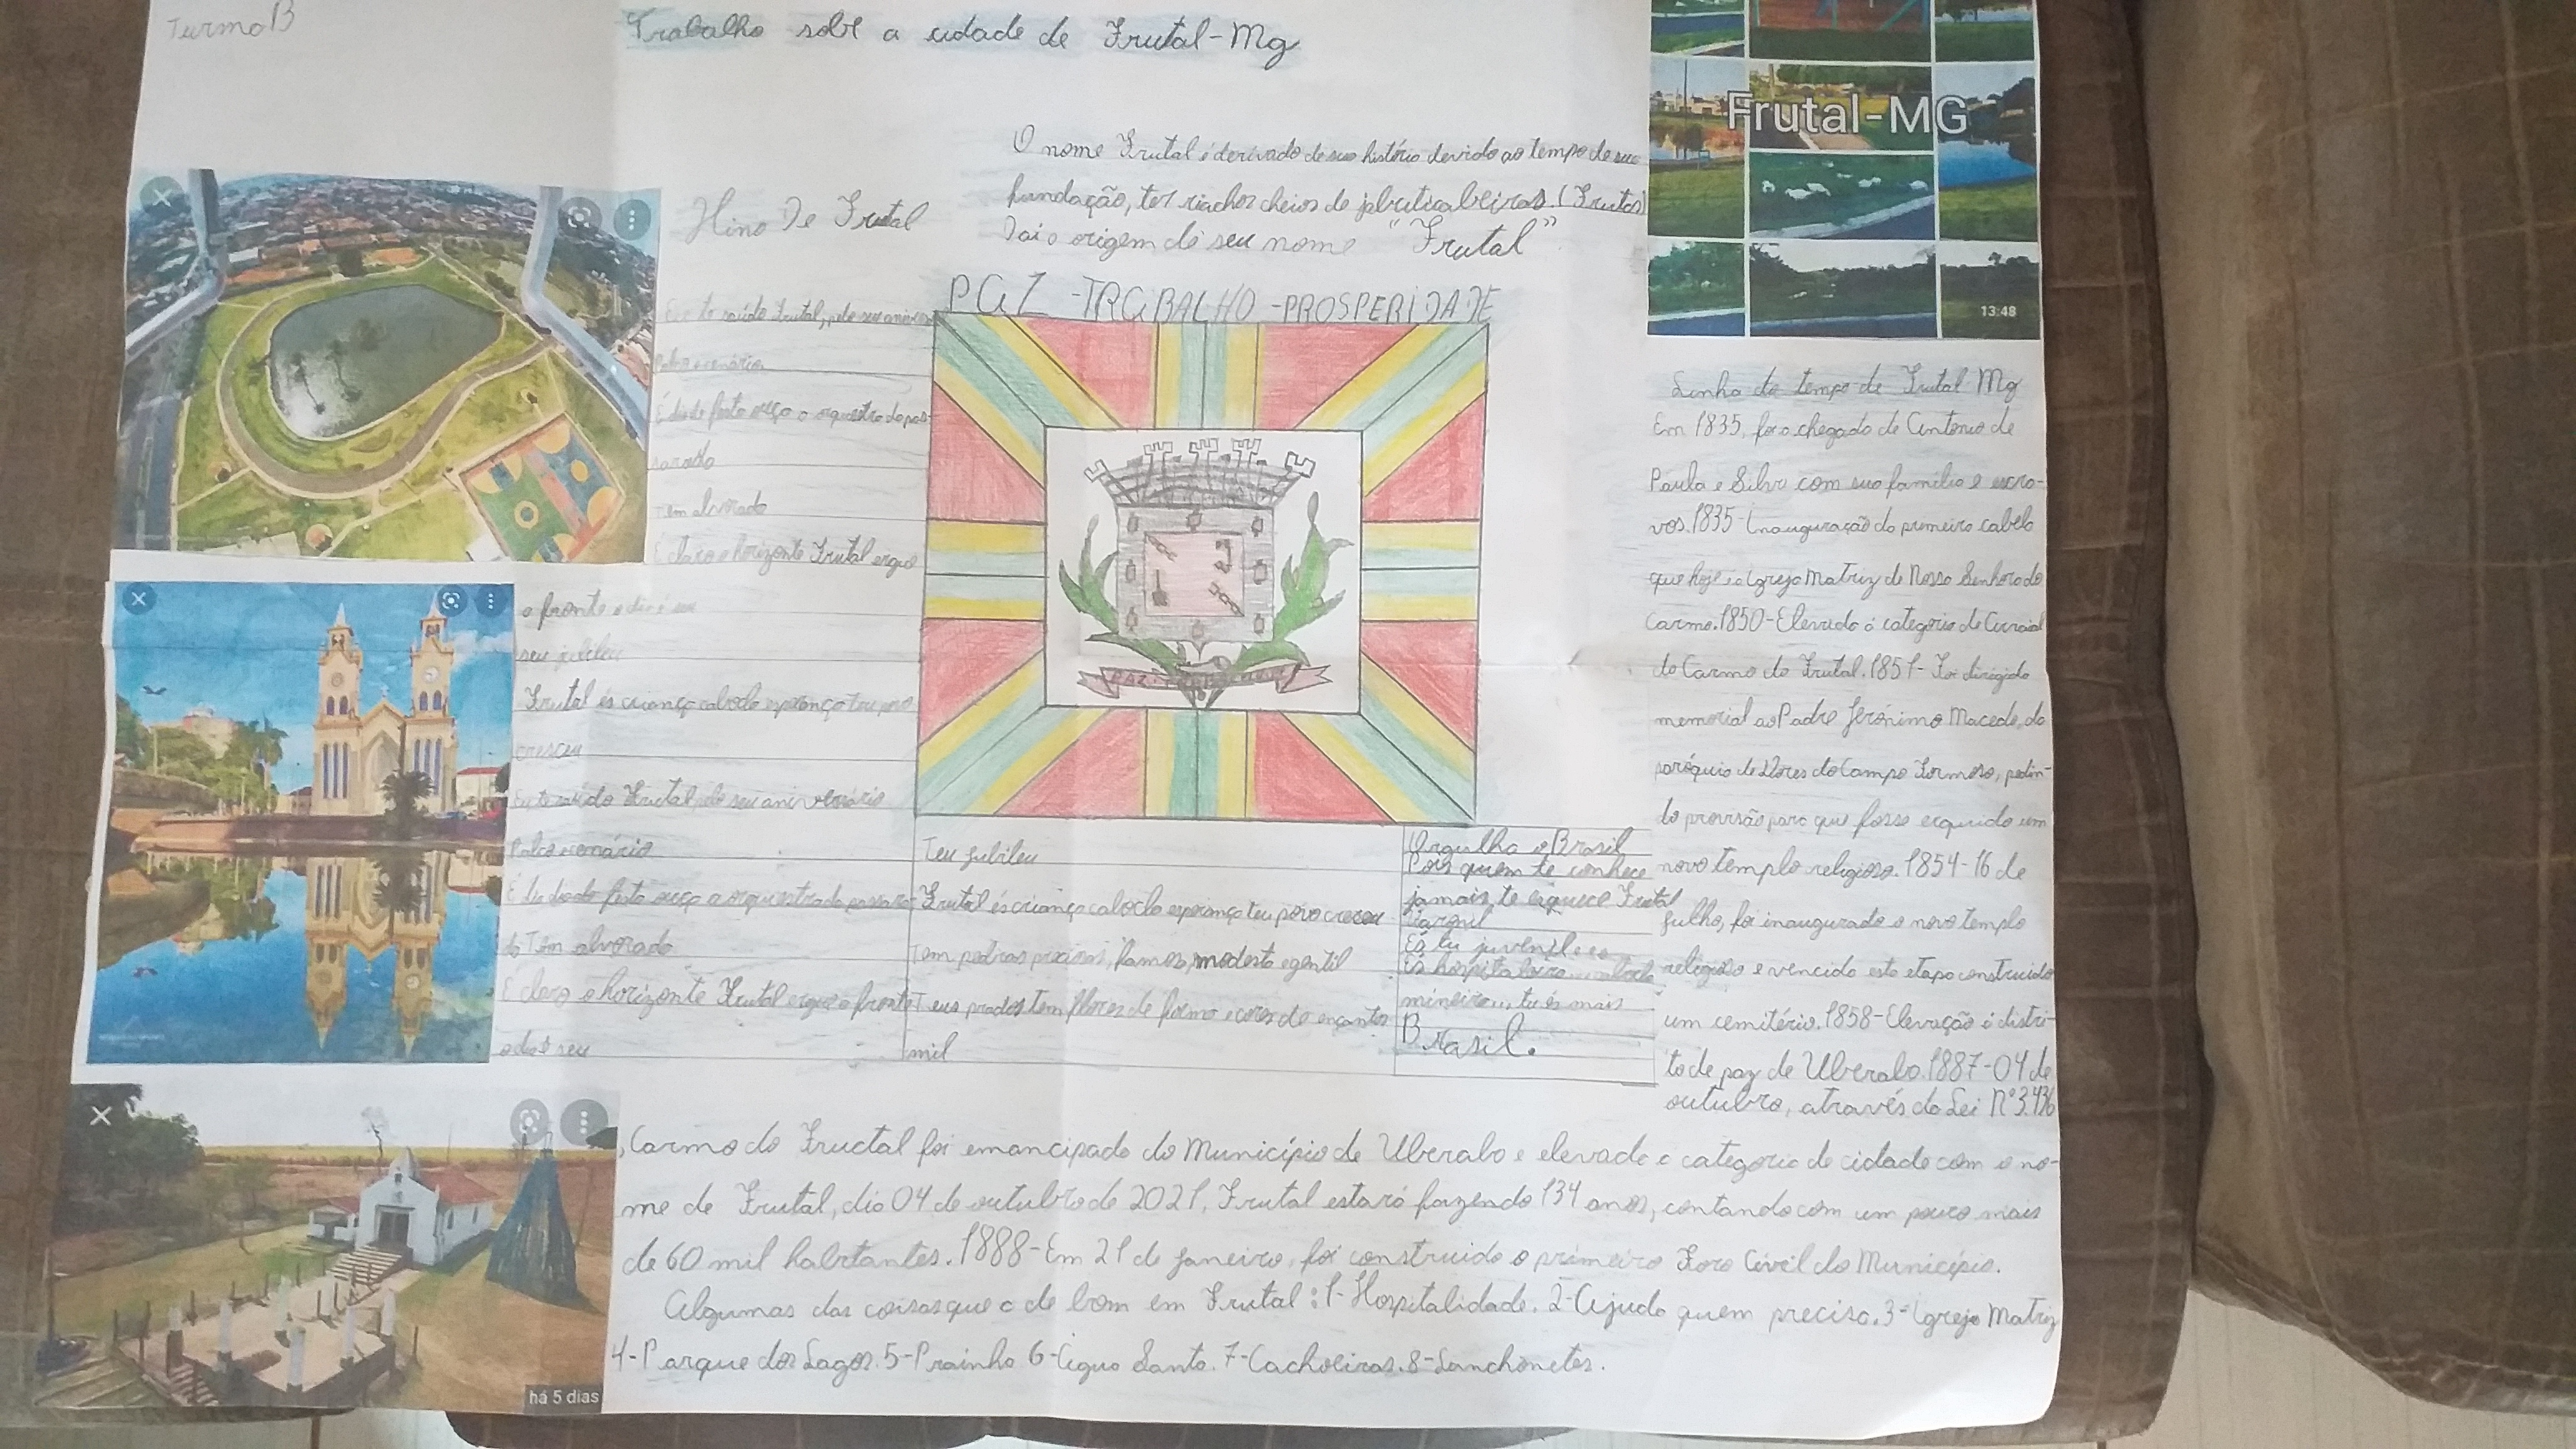 Turma B
Trabalho sobre a cidade de Frutal-Mg
O nome Frutal é derivado de sua história devido ao tempo de sua
fundação, ter riachos cheios de jabuticabeiras. (Frutas)
Daí a origem de seu nome "Frutal"
Hino De Frutal
te saúdo Frutal, pelo seu anivers
Palco cenário
É dia de festa ouço a orquestra da pas-
sarada
Tem alvorada
É claro o horizonte Frutal ergue
a fronte o dia é seu
seu jubileu
Frutal és criança cabocla esperança teu povo
cresceu
Eu te saúdo Frutal, pelo seu aniversário
Palco cenário
É dia de festa ouço a orquestra da passara-
da Tem alvorada
É claro o horizonte Frutal ergue a fronte
o dia é seu
PAZ - TRABALHO - PROSPERIDADE
PAZ
Teu jubileu
Frutal és criança cabocla esperança teu povo cresceu
Tem pedras preciosas, famosa, modesta e gentil
Teus prados tem flores de fama e cores de encantos
mil
Orgulha o Brasil
Pois quem te conhece
jamais te esquece Frutal
És tu juvenil e es
És hospitaleira
mineira, tu és mais
Brasil.
Frutal-MG
13:48
Linha do tempo de Frutal Mg
Em 1835, foi a chegada de Antonio de
Paula e Silva com sua família e escra-
vos. 1835-Inauguração da primeira cabela
que hoje é a Igreja Matriz de Nossa Senhora do
Carmo. 1850-Elevada á categoria de Curraial
do Carmo do Frutal. 1851- Foi dirigido
memorial ao Padre Jerónimo Macede, da
paróquia de Dores do Campo Formoso, pedin-
do provisão para que fosse erguido um
novo templo religioso. 1854-16 de
julho, foi inaugurado o novo templo
religioso e vencida esta etapa construido
um cemitério. 1858-Elevação á distri-
to de paz de Uberaba. 1887-04 de
outubro, através da Lei N° 3.436
, Carmo do Fructal foi emancipado do Município de Uberaba e elevado a categoria de cidade com o no-
me de Frutal, dia 04 de outubro de 2021, Frutal estará fazendo 134 anos, contando com um pouco mais
de 60 mil habitantes. 1888-Em 21 de janeiro, foi construido o primeiro Foro Civil do Município.
Algumas das coisas que a de bom em Frutal: 1-Hospitalidade. 2-Ajuda quem precisa. 3-Igreja Matriz
4-Parque dos Lagos. 5-Prainha 6-Água Santa. 7-Cachoeiras. 8-Lanchonetes.
há 5 dias